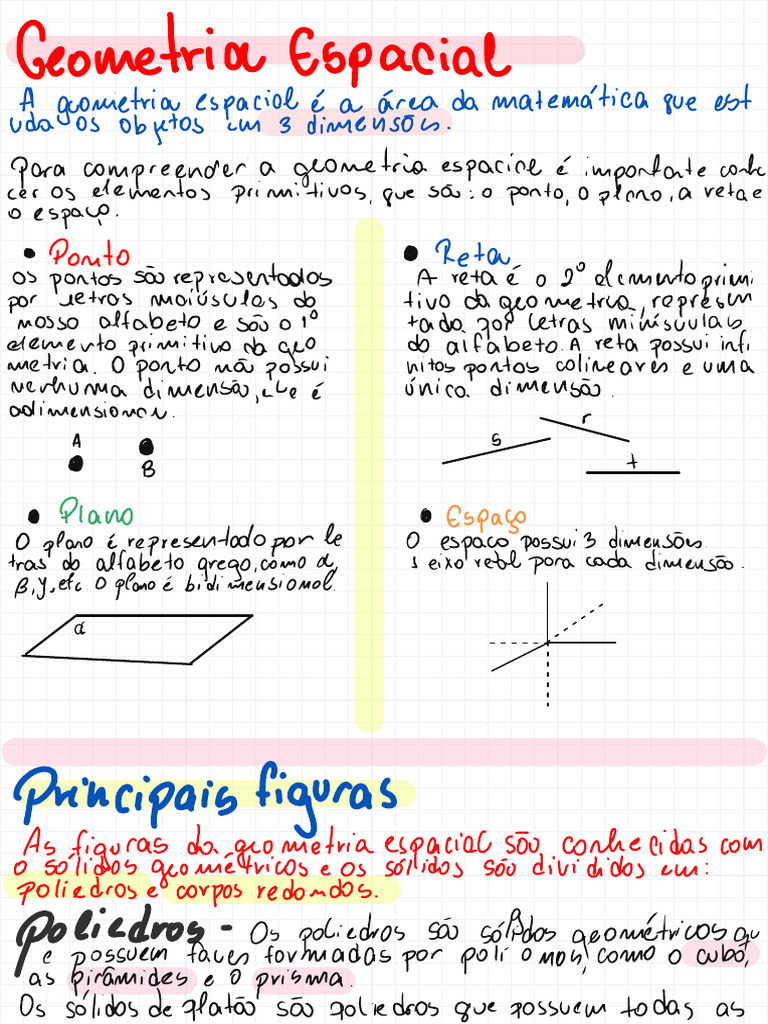 Geometria Espacial
A geometria espacial é a área da matemática que est
uda os objetos em 3 dimensões.
Para compreender a geometria espacial é importante conhe
cer os elementos primitivos, que são: o ponto, o plano, a reta e
o espaço.
• Ponto
Os pontos são representados
por letras maiúsculas do
nosso alfabeto e são o 1º
elemento primitivo da geo
metria. O ponto não possui
nenhuma dimensão, ele é
adimensional.
A
B
• Reta
A reta é o 2º elemento primi
tivo da geometria, represen
tada por letras minísculas
do alfabeto. A reta possui infi
nitos pontos colineares e uma
única dimensão.
s
r
t
• Plano
O plano é representado por le
tras do alfabeto grego, como α,
β, γ, etc. O plano é bidimensional.
α
• Espaço
O espaço possui 3 dimensões.
1 eixo retal para cada dimensão.
Principais figuras
As figuras da geometria espacial são conhecidas com
o sólidos geométricos e os sólidos são divididos em:
poliedros e corpos redondos.
Poliedros - Os poliedros são sólidos geométricos qu
e possuem faces formadas por polí o nos, como o cubo,
as pirâmides e o prisma.
Os sólidos de platão são poliedros que possuem todas as